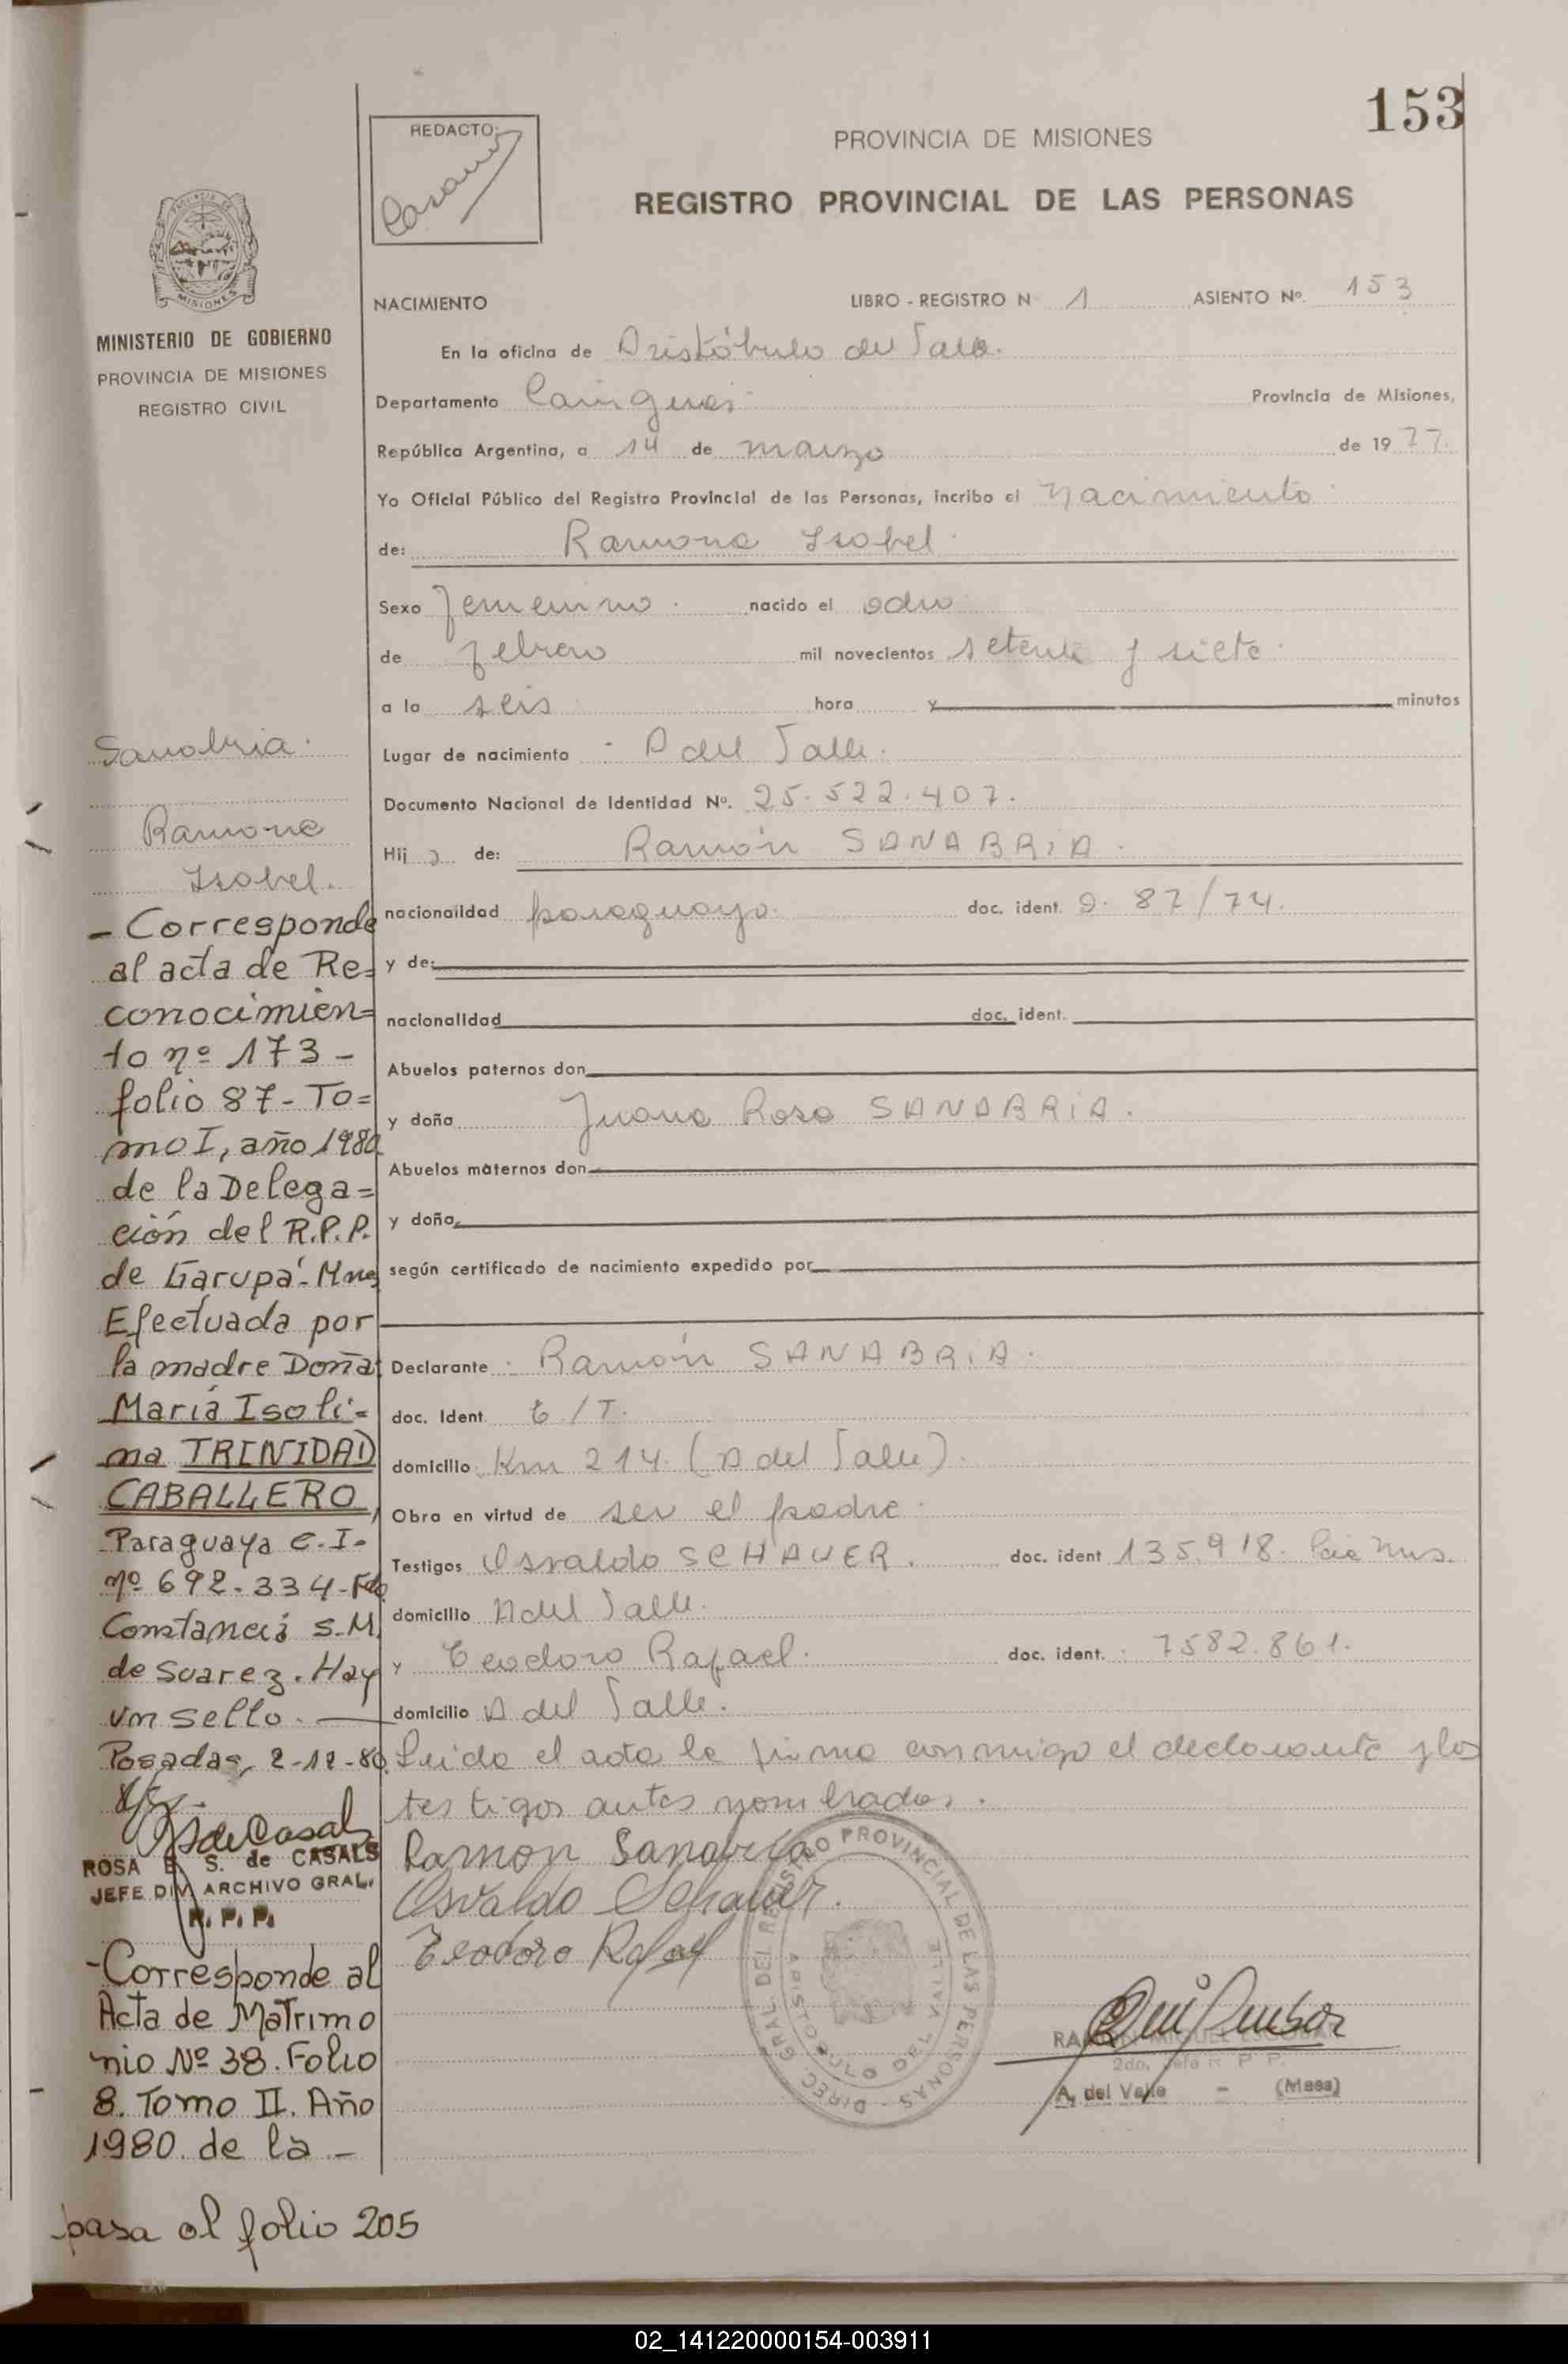 153
REDACTO:
PROVINCIA DE MISIONES
REGISTRO PROVINCIAL DE LAS PERSONAS
MISIONES
MINISTERIO DE GOBIERNO
PROVINCIA DE MISIONES
REGISTRO CIVIL
NACIMIENTO LIBRO - REGISTRO N 1 ASIENTO Nº. 153
En la oficina de Aristóbulo del Valle.
Departamento Cainguás Provincia de Misiones,
República Argentina, a 14 de marzo de 1977.
Yo Oficial Público del Registro Provincial de las Personas, incribo el nacimiento
de: Ramona Isabel
Sexo femenino. nacido el ocho
de febrero mil novecientos setenta y siete
a la seis hora y minutos
Lugar de nacimiento A del Valle.
Documento Nacional de Identidad Nº. 25.522.407.
Hij a de: Ramón SANABRIA.
nacionalidad paraguayo. doc. ident. 9. 87/74.
y de:
nacionalidad doc. ident.
Abuelos paternos don
y doña Juana Rosa SANABRIA.
Abuelos maternos don
y doña
según certificado de nacimiento expedido por
Declarante Ramón SANABRIA.
doc. Ident /T.
domicilio Km 214. (A del Valle).
Obra en virtud de ser el padre
Testigos Osvaldo SCHAUER. doc. ident 135.918. Mns.
domicilio A del Valle.
y Teodoro Rafael. doc. ident. 7582.861.
domicilio A del Valle.
Leida el acta la firma conmigo el declarante y los
testigos antes nombrados.
Ramon Sanabria
Osvaldo Schauer.
Teodoro Rafael
DIREC. GRAL. DEL REGISTRO PROVINCIAL DE LAS PERSONAS
ARISTOBULO DEL VALLE
RAMON MIGUEL ESCOBAR
2do. Jefe R P P.
A. del Valle - (Mnes)
Sanabria.
Ramona
Isabel.
- Corresponde
al acta de Re=
conocimien=
to nº 173 -
folio 87 - To=
mo I, año 1980
de la Delega=
ción del R.P.P.
de Garupá - Mnes
Efectuada por
la madre Doña
María Isoli=
na TRINIDAD
CABALLERO,
Paraguaya C.I.
nº 692.334 - Fdo.
Constancia S.M.
de Suarez. Hay
un sello.
Posadas, 2-12-80.
ROSA E. S. de CASALS
JEFE DIV. ARCHIVO GRAL.
R. P. P.
- Corresponde al
Acta de Matrimo
nio Nº 38. Folio
8. Tomo II. Año
1980. de la -
pasa al folio 205
02_141220000154-003911